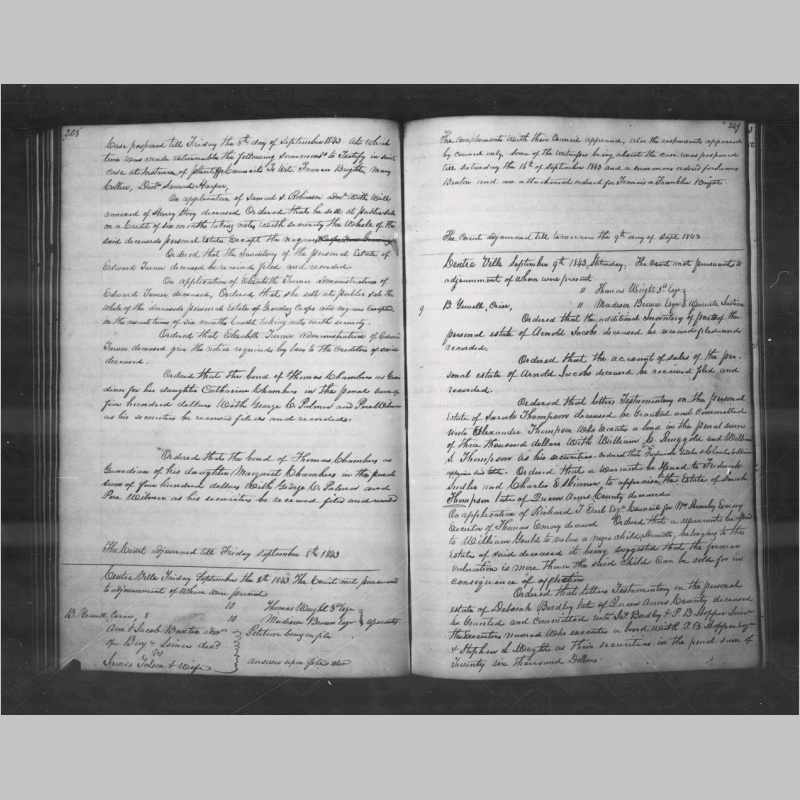 208
Case postponed till Friday the 8th day of September 1843 at which
time was made returnable the following summons's to Testify in said
case at instance of plaintiffs Francis Bright, Mary
Collier,
On application of Samuel J. Robinson Admr with Will
annexed of Henry deceased Ordered that he sell at public sale
on a Credit of six months taking notes with security the Whole of the
said deceased personal Estate except the negroes
Ordered that the Inventory of the personal Estate of
Edward Turner deceased be received filed and recorded.
On application of Elizabeth Turner Administratrix of
Edward Turner deceased, Ordered that she sell at public sale the
whole of the deceased personal estate of Growing Crops and negroes excepted
on the usual terms of six months Credit taking notes with security.
Ordered that Elizabeth Turner administratrix of Edward
Turner deceased give the notice required by law to the Creditors of said
deceased.
Ordered that the bond of Thomas Chambers as Guar
dian for his daughter Catherine Chambers in the penal sum of
five hundred dollars With George W. Palmer and
as his securities be received filed and recorded.
Ordered that the bond of Thomas Chambers as
Guardian of his daughter Margaret Chambers in the penal
sum of five hundred dollars With George W. Palmer and
as his securities be received filed and
The Court adjourned till Friday September 8th 1843
Centre Ville Friday September the 8th 1843 The Court met pursuant
to adjournment of Whom were present
11 Thomas Wright 3d Esqr
11 Madison Brown Esqr
Crier,
Ann & Jacob
of Benj
vs
& Wife
Petition being on file
answers upon file also
209
The complainants with their Council appeared, also the respondents appeared
by council only. Some of the witnesses being absent the case was postponed
till Saturday the 16th of September 1843 and a summons ordered for
and an attachment ordered for Francis a Franklin Bright
The Court adjourned till tomorrow the 9th day of Sept 1843
Centre Ville September 9th 1843, Saturday. The Court met pursuant to
adjournment of whom were present
11 Thomas Wright 3d Esqr
9 Crier, 11 Madison Brown Esqr Justices
Ordered that the additional Inventory of part of the
personal estate of Arnold Jacobs deceased be received filed and
recorded.
Ordered that the account of sales of the per-
sonal estate of Arnold Jacobs deceased be received filed and
recorded.
Ordered that letters Testamentary on the personal
Estate of Sarah Thompson deceased be Granted and Committed
unto Alexander Thompson who executes a bond in the penal sum
of three thousand dollars With William C. Ruggold and William
S. Thompson as his securities.
Ordered that a warrant be issued to Frederick
and Charles E. Skinner to appraise the Estate of Sarah
Thompson late of Queen Anns County deceased
On application of Richard T. Earle Esqr Council for Wm Emory
Executor of Thomas Emory deceased Ordered that a warrant be issued
to William Gould to value a negro child, belonging to the
Estate of said deceased it being suggested that the former
valuation is more than the said Child can be sold for in
consequence of affliction
Ordered that letters Testamentary on the personal
estate of Deborah Busby late of Queen Anns County deceased
be Granted and Committed unto Busby & P. B. Hopper
the Executors named who execute a bond with P. B. Hopper
& Stephen L. Wright as their securities in the penal sum of
Twenty six thousand Dollars.